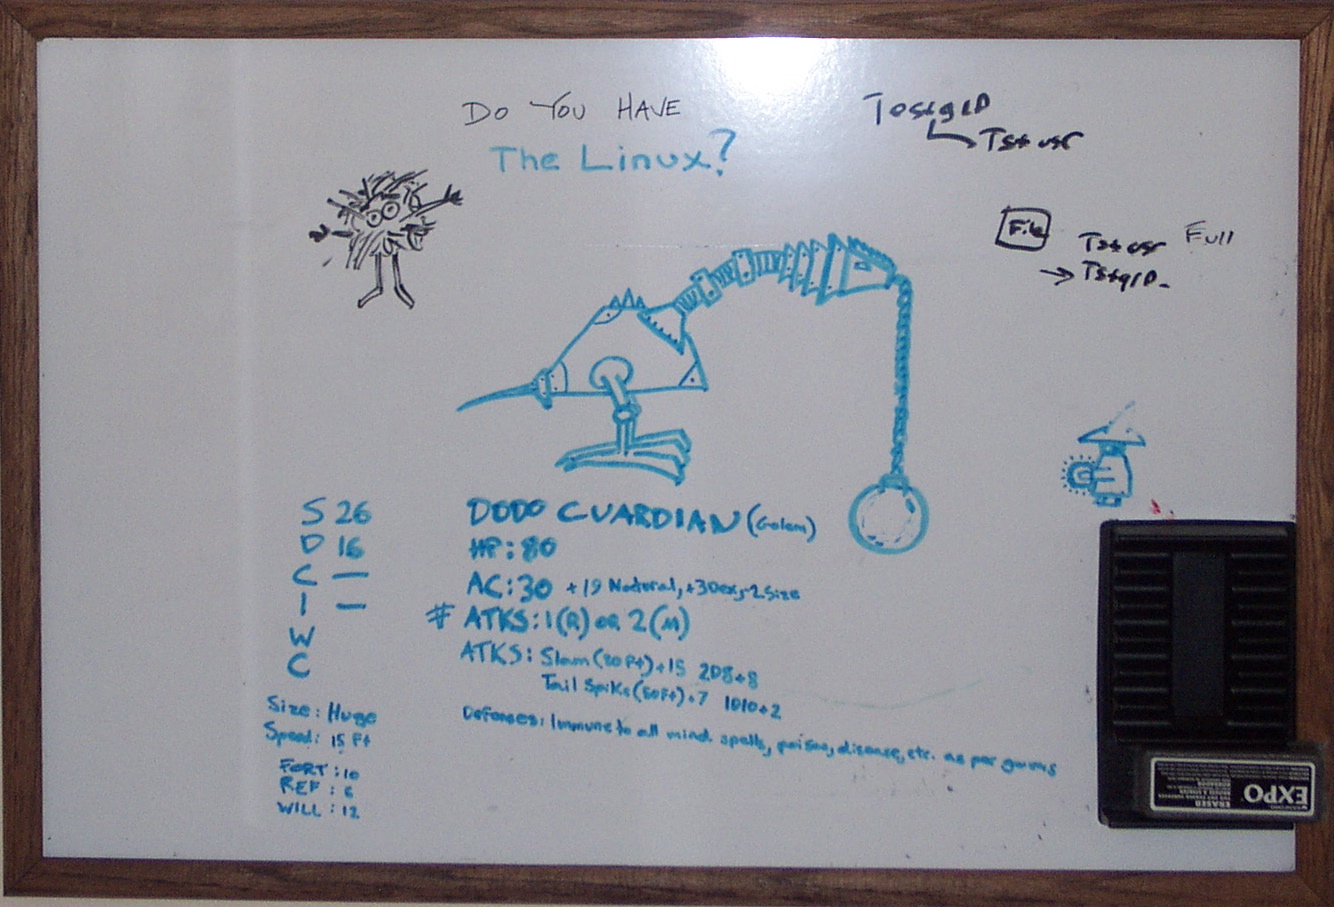 DO YOU HAVE
The Linux?
TestgID
Tstusr
File
Tstusr Full
→ TstgID
S 26
D 16
C —
I —
W
C
Size: Huge
Speed: 15 Ft
FORT: 10
REF: 6
WILL: 12
DODO GUARDIAN (Golem)
HP: 80
AC: 30 +19 Natural, +3 Dex, -2 Size
# ATKS: 1(R) or 2(M)
ATKS: Slam (20 Ft) +15 2D8+8
Tail Spike (50Ft) +7 1D10+2
Defenses: Immune to all mind spells, poison, disease, etc. as per golems
EXPO
ERASER